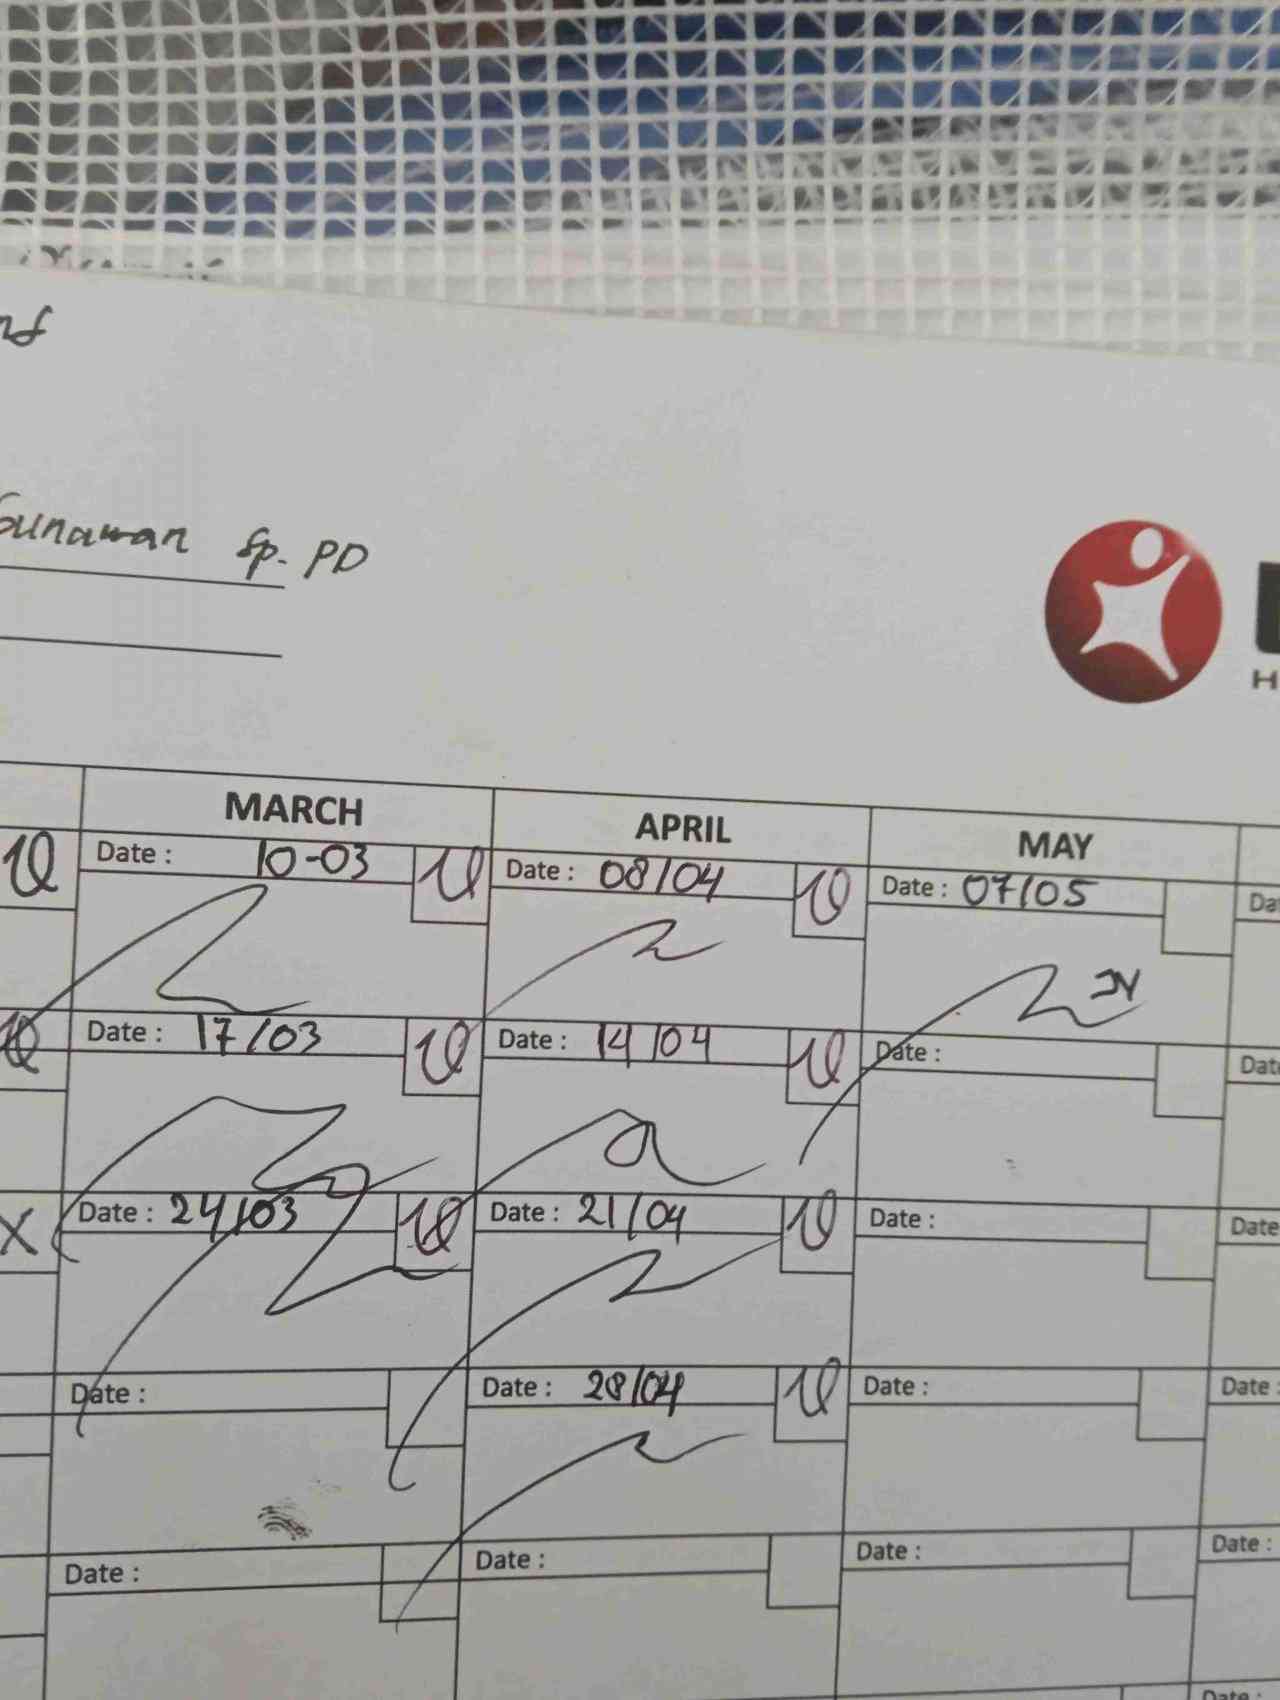 Gunawan Sp. PD
H
MARCH APRIL MAY
Date : 10-03 Date : 08/04 Date : 07/05 Da
Date : 17/03 Date : 14/04 Date : Dat
X Date : 24/03 Date : 21/04 Date : Date
Date : Date : 28/04 Date : Date :
Date : Date : Date : Date :
Date :